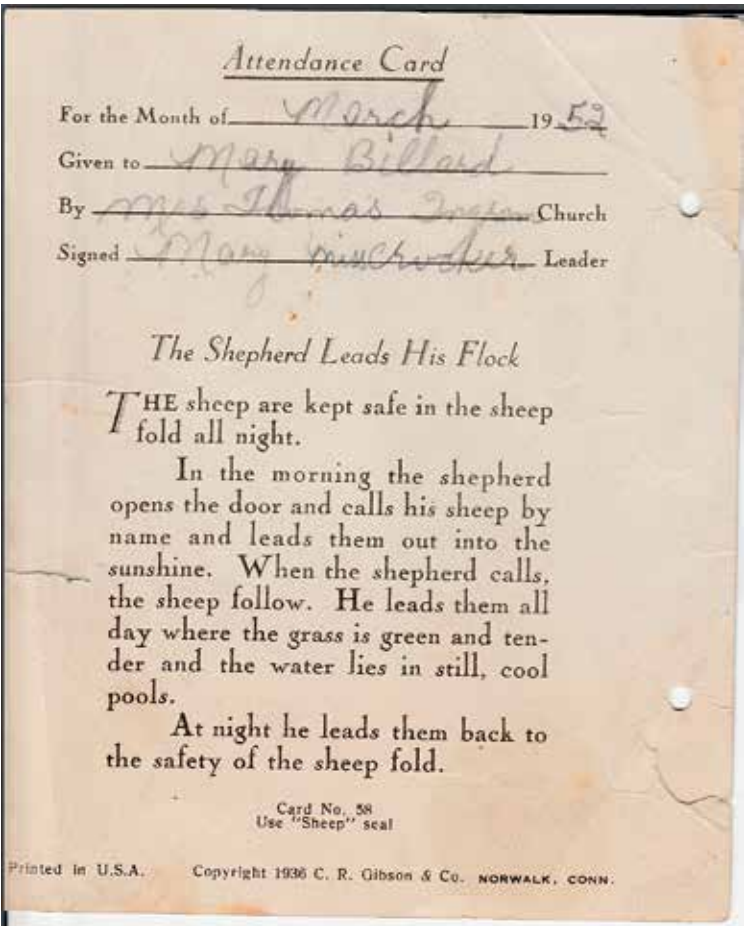 Attendance Card
For the Month of March 19 52
Given to Mary Billard
By Mrs Thomas Ingram Church
Signed Mary Miss Crocker Leader
The Shepherd Leads His Flock
THE sheep are kept safe in the sheep
fold all night.
In the morning the shepherd
opens the door and calls his sheep by
name and leads them out into the
sunshine. When the shepherd calls,
the sheep follow. He leads them all
day where the grass is green and ten-
der and the water lies in still, cool
pools.
At night he leads them back to
the safety of the sheep fold.
Card No. 58
Use "Sheep" seal
Printed in U.S.A. Copyright 1936 C. R. Gibson & Co. NORWALK, CONN.